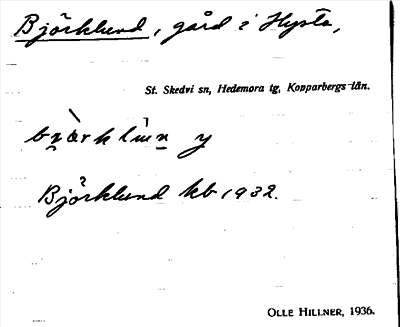 Björklund, gård i Hysta,
St. Skedvi sn, Hedemora tg, Kopparbergs län.
y
Björklund kb 1932.
OLLE HILLNER, 1936.